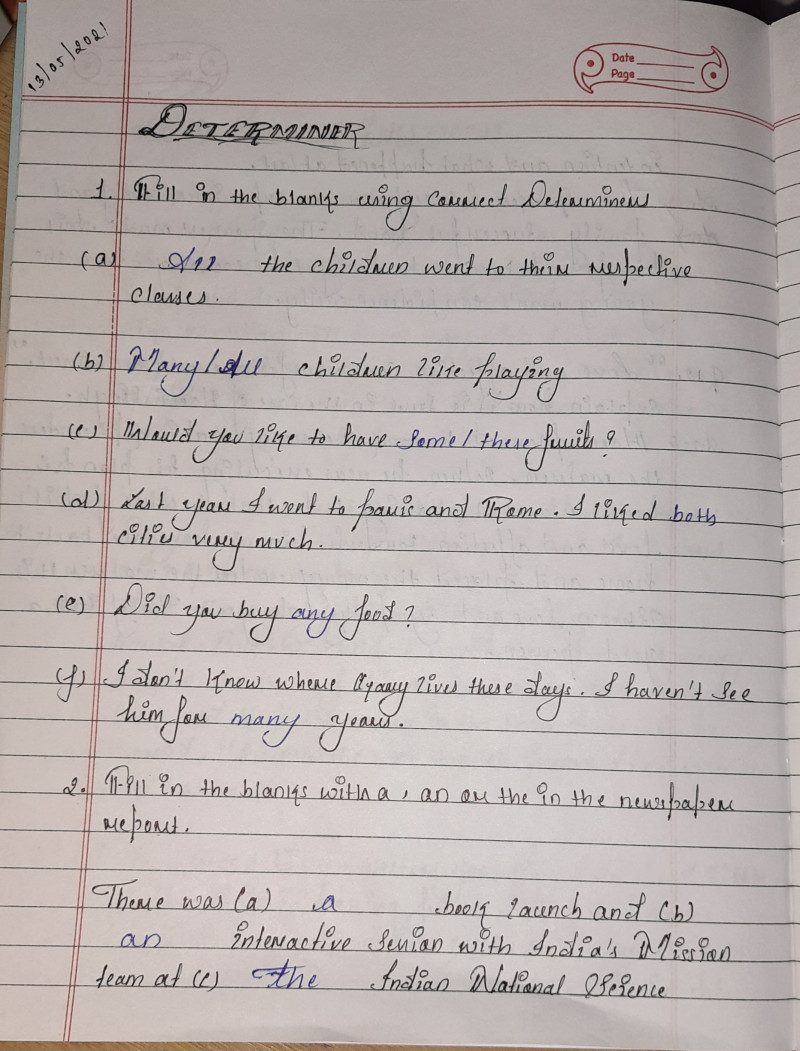 13/05/2021
Date
Page
DETERMINER
1. Fill in the blanks using correct Determiners
(a) All the children went to their respective
classes.
(b) Many/All children like playing
(c) Would you like to have some/these fruits?
(d) Last year I went to paris and Rome. I liked both
cities very much.
(e) Did you buy any food?
(f) I don't know where lives these days. I haven't see
him for many years.
2. Fill in the blanks with a, an or the in the newspaper
report.
There was (a) a book launch and (b)
an interactive with India's Mission
team at (c) the Indian National